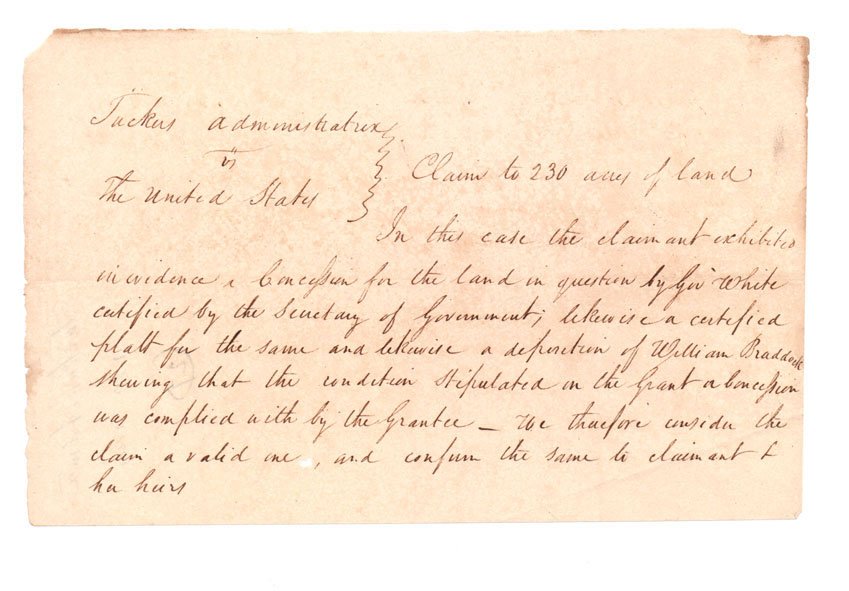 Tuckers administratrix
vs
The United States
Claim to 230 acres of land
In this case the claimant exhibited
in evidence a Concession for the land in question by Gov White
certified by the Secretary of Government; likewise a certified
platt for the same and likewise a deposition of William Braddock
shewing that the condition stipulated in the Grant or Concession
was complied with by the Grantee — We therefore consider the
claim a valid one, and confirm the same to claimant &
her heirs